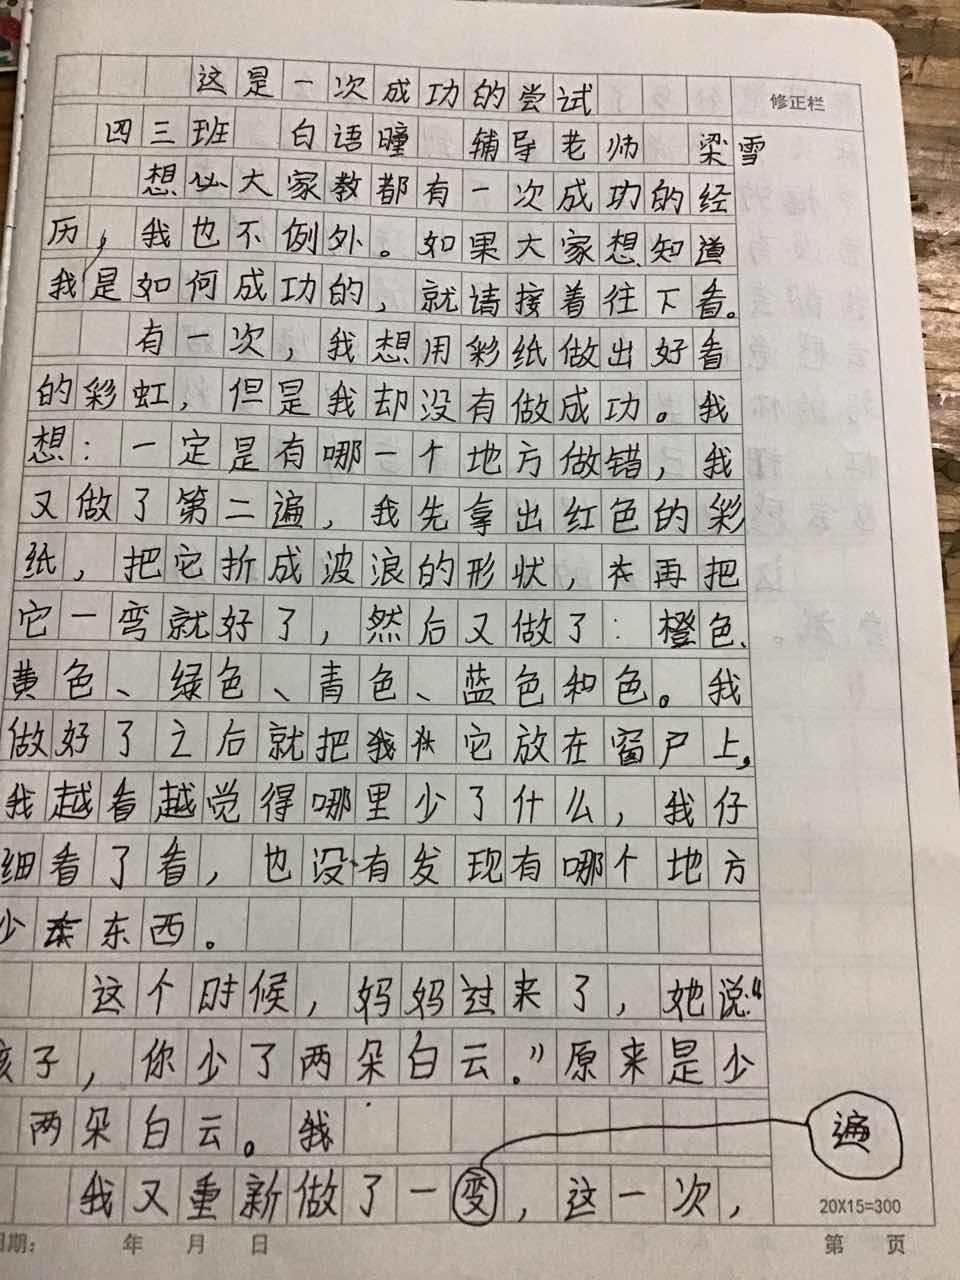 这是一次成功的尝试
修正栏
四三班 白语瞳 辅导老师 梁雪
想必大家教都有一次成功的经
历，我也不例外。如果大家想知道
我是如何成功的，就请接着往下看。
有一次，我想用彩纸做出好看
的彩虹，但是我却没有做成功。我
想：一定是有哪一个地方做错，我
又做了第二遍，我先拿出红色的彩
纸，把它折成波浪的形状，再把
它一弯就好了，然后又做了：橙色、
黄色、绿色、青色、蓝色和色。我
做好了之后就把它放在窗户上，
我越看越觉得哪里少了什么，我仔
细看了看，也没有发现有哪个地方
少东西。
这个时候，妈妈过来了，她说：“
孩子，你少了两朵白云。”原来是少
两朵白云。我
我又重新做了一变，这一次，
遍
20X15=300
日期： 年 月 日 第 页